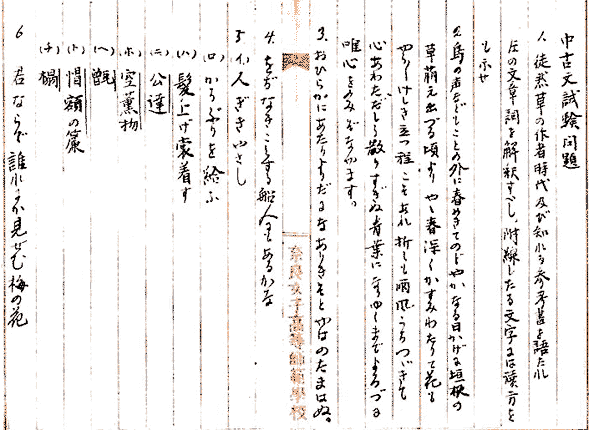 中古文試験問題
1. 徒然草の作者時代及び知れる参考書を語れ
左の文章詞を解釈すべし、附線したる文字には読方を
も示せ
2. 鳥の声などもことの外に春めきてのどやかなる日かげに垣根の
草萌え出づる頃より やゝ春深くかすみわたりて花も
やうやうけしき立つ程こそあれ 折しも雨風うちつゞきて
心あわただしう散りすぎぬ青葉になりゆくまでよろづに
唯心をのみぞなやます。
3. おひらかにあたりよりだになありきそとやはのたまはぬ。
4. をぢなきことする船人にもあるかな
5. (イ) 人ぎきやさし
(ロ) かうぶりを給ふ
(ハ) 髪上げ裳着す
(ニ) 公達
(ホ) 空薫物
(ヘ) 甑
(ト) 帽額の簾
(チ) 榻
6 君ならで誰れか見せむ梅の花
奈良女子高等師範學校